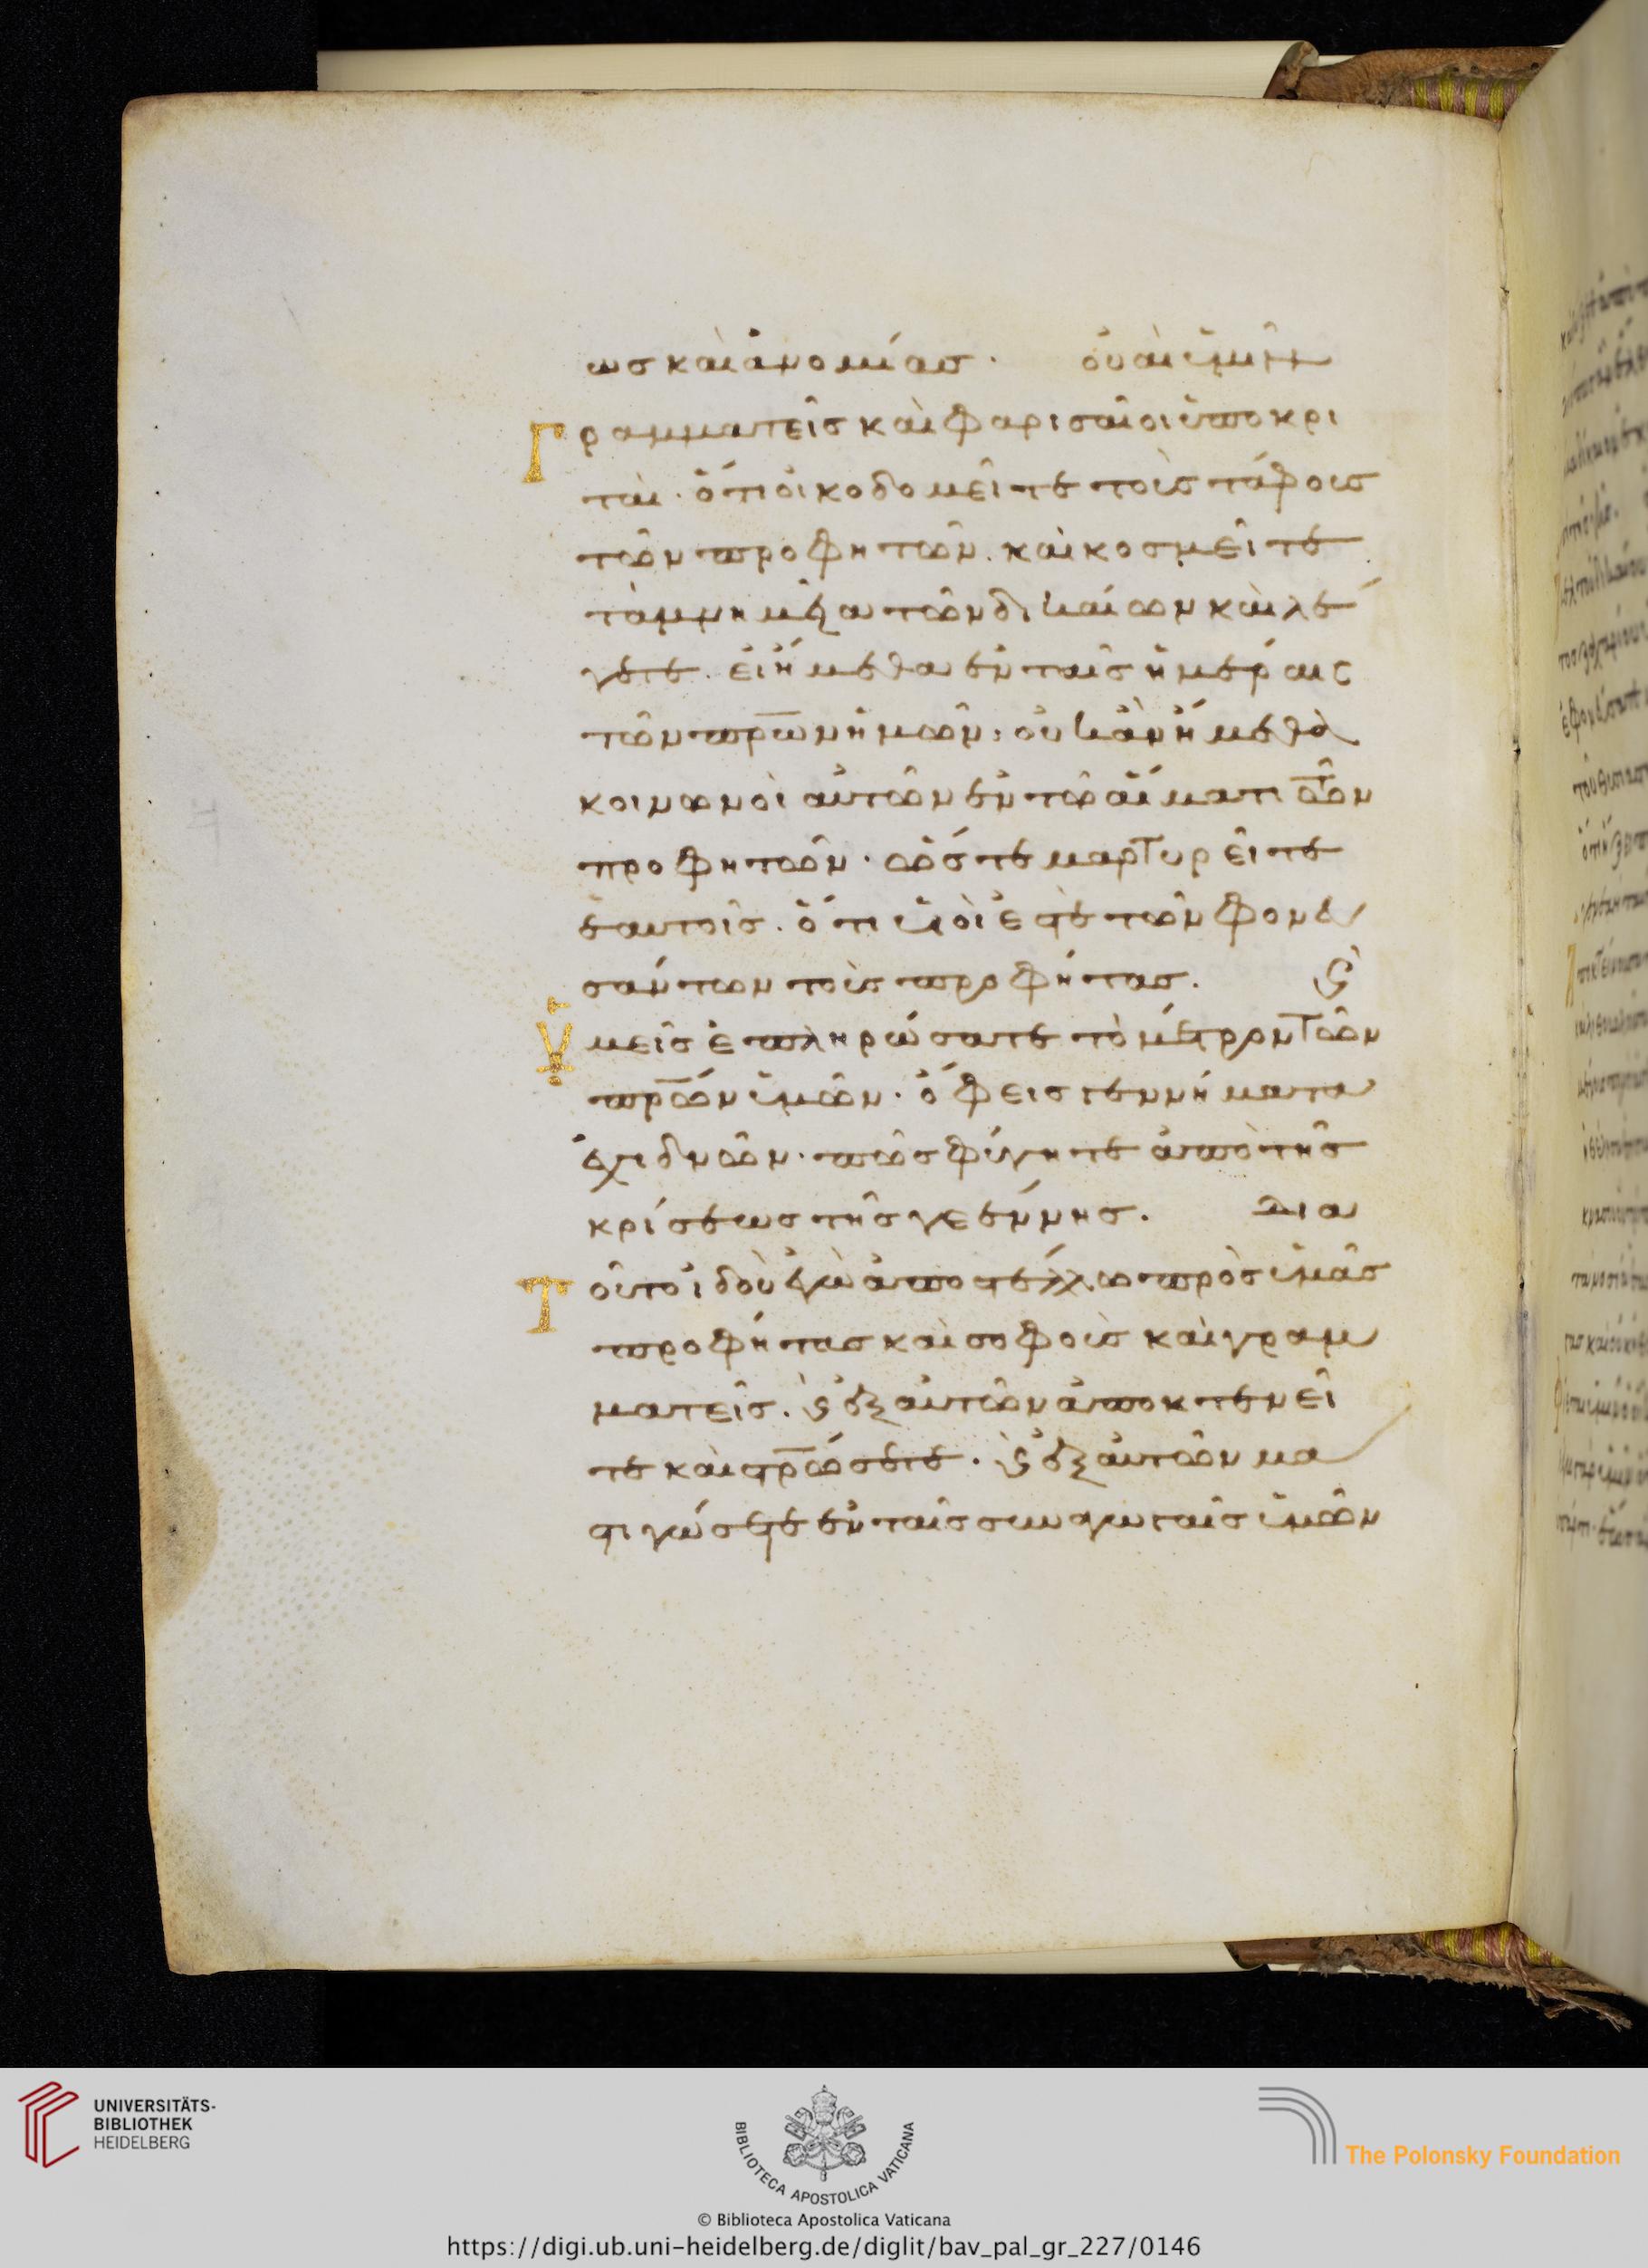 ως καὶ ἀνομίας · οὐαὶ ὑμῖν
Γραμματεῖς καὶ φαρισαῖοι ὑποκρι
ταὶ · ὅτι οἰκοδομεῖτε τοὺς τάφους
τῶν προφητῶν · καὶ κοσμεῖτε
τὰ μνημεῖα τῶν δικαίων καὶ λέ
γετε · εἰ ἤμεθα ἐν ταῖς ἡμέραις
τῶν πρ̅ων ἡμῶν · οὐκ ἂν ἤμεθα
κοινωνοὶ αὐτῶν ἐν τῷ αἵματι τῶν
προφητῶν · ὥστε μαρτυρεῖτε
ἑαυτοῖς · ὅτι υἱοί ἐστε τῶν φονευ
σάντων τοὺς προφήτας · ϗ
Ὑμεῖς ἐπληρώσατε τὸ μέτρον τῶν
πρ̅ων ὑμῶν · ὄφεις γεννήματα
ἐχιδνῶν · πῶς φύγητε ἀπὸ τῆς
κρίσεως τῆς γεέννης · Δια
Τοῦτο ἰδοὺ ἐγὼ ἀποστέλλω πρὸς ὑμᾶς
προφήτας καὶ σοφοὺς καὶ γραμ
ματεῖς · ϗ ἐξ αὐτῶν ἀποκτενεῖ
τε καὶ στρ̅ώσετε · ϗ ἐξ αὐτῶν μα
στιγώσετε ἐν ταῖς συναγωγαῖς ὑμῶν
UNIVERSITÄTS-
BIBLIOTHEK
HEIDELBERG
BIBLIOTECA APOSTOLICA VATICANA
The Polonsky Foundation
© Biblioteca Apostolica Vaticana
https://digi.ub.uni-heidelberg.de/diglit/bav_pal_gr_227/0146